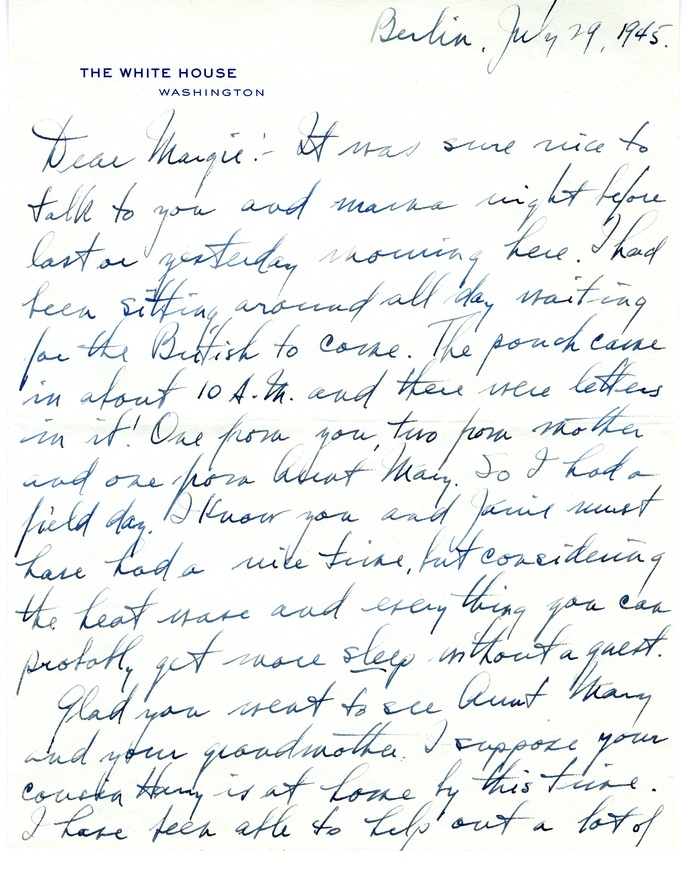 Berlin, July 29, 1945.
THE WHITE HOUSE
WASHINGTON
Dear Margie:- It was sure nice to
talk to you and mama night before
last or yesterday morning here. I had
been sitting around all day waiting
for the British to come. The pouch came
in about 10 A.M. and there were letters
in it! One from you, two from mother
and one from Aunt Mary. So I had a
field day. I know you and Janie must
have had a nice time, but considering
the heat wave and everything you can
probably get more sleep without a guest.
Glad you went to see Aunt Mary
and your grandmother. I suppose your
cousin Harry is at home by this time.
I have been able to help out a lot of